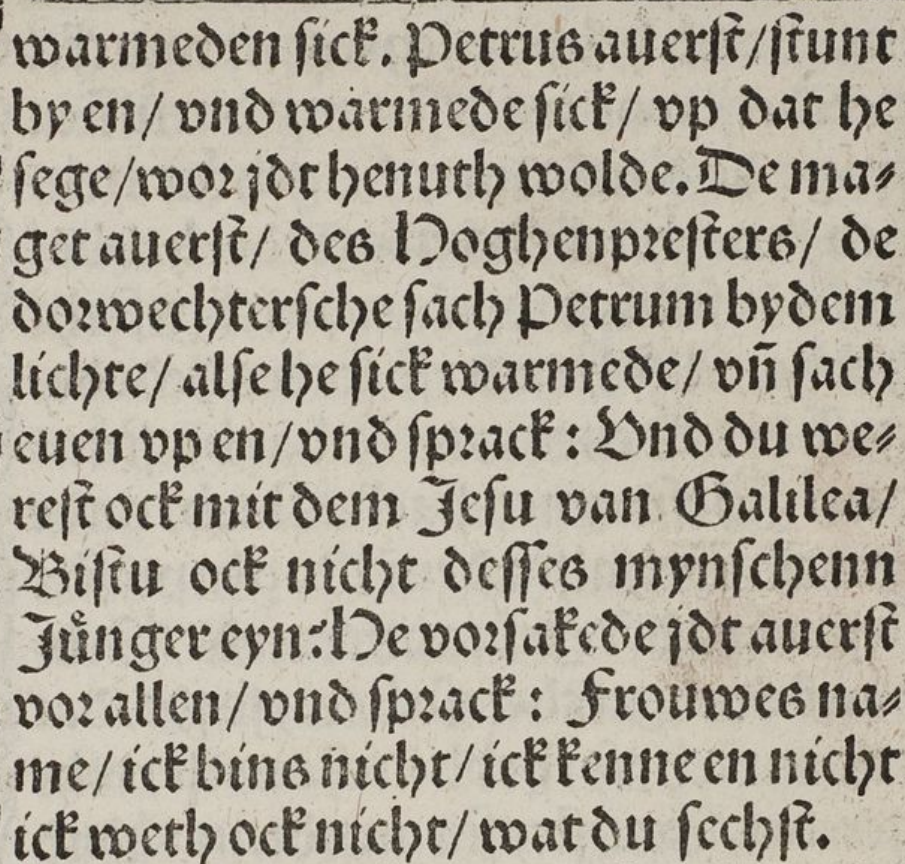 warmeden sick. Petrus auerst/stunt
by en/ vnd warmede sick/ vp dat he
sege/wor jdt henuth wolde. De ma⸗
get auerst/ des Hoghenpresters/ de
dorwechtersche sach Petrum bydem
lichte/ alse he sick warmede/ vñ sach
euen vp en/vnd sprack: Vnd du we⸗
rest ock mit dem Jesu van Galilea/
Bistu ock nicht desses mynschenn
Jůnger eyn? He vorsakede jdt auerst
vor allen/ vnd sprack: Frouwes na⸗
me/ ick bins nicht/ ick kenne en nicht
ick weth ock nicht/ wat du sechst.